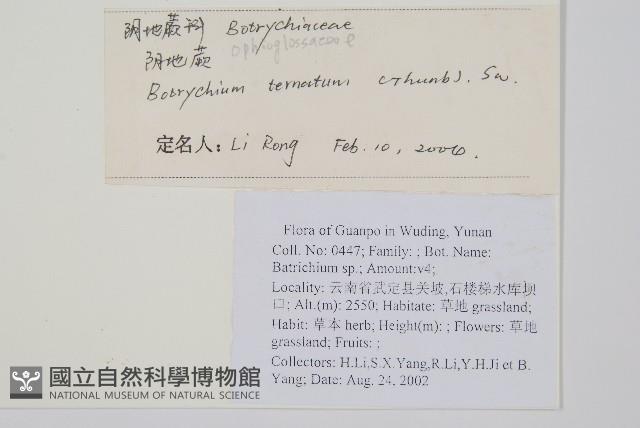 阴地蕨科 Botrychiaceae
Ophioglossaceae
阴地蕨
Botrychium ternatum (Thunb). Sw.
定名人：Li Rong Feb. 10, 2004.
Flora of Guanpo in Wuding, Yunan
Coll. No: 0447; Family: ; Bot. Name:
Batrichium sp.; Amount:v4;
Locality: 云南省武定县关坡,石楼梯水库坝
口; Alt.(m): 2550; Habitate: 草地 grassland;
Habit: 草本 herb; Height(m): ; Flowers: 草地
grassland; Fruits: ;
Collectors: H.Li,S.X.Yang,R.Li,Y.H.Ji et B.
Yang; Date: Aug. 24, 2002
國立自然科學博物館
NATIONAL MUSEUM OF NATURAL SCIENCE